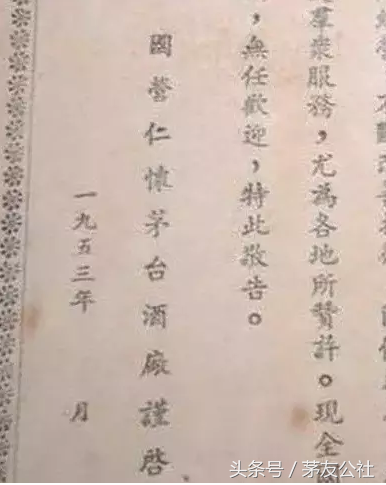 羣衆服務，尤為各地所贊許。現全
，無任歡迎，特此敬告。
國營仁懷茅台酒廠謹啓
一九五三年 月
头条号 / 茅友公社